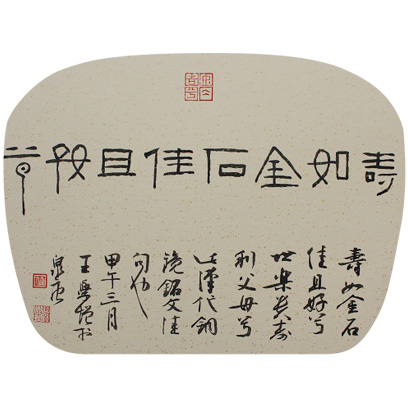 壽如金石佳且好兮
壽如金石
佳且好兮
世樂壽
利父母兮
此漢代銅
鏡銘文佳
句也
甲午三月
王於